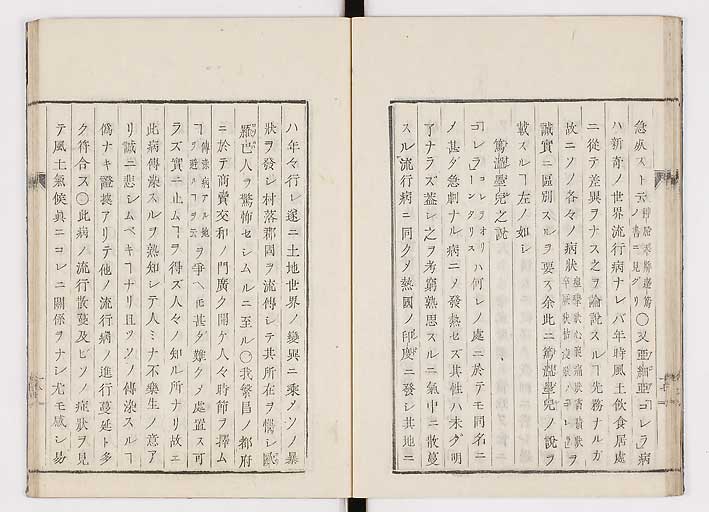 急ナリト云 ノ書ニ見グリ 〇又亞細亞「コレラ」病
ハ新奇ノ世界流行病ナレバ年時風土飲食居處
ニ從テ差異ヲナス之ヲ論説スルヿ先務ナルガ
故ニソノ各々ノ病狀
誠實ニ區別スルヲ要ス余此ニ篤瀝壘兒ノ説ヲ
載スルヿ左ノ如シ
篤瀝壘兒之説
「コレラ」 ハ何レノ處ニ於テモ同名ニ
ノ甚ダ急劇ナル病ニ〆發熱セズ其性ハ未ダ明
了ナラズ蓋シ之ヲ考窮熟思スルニ氣中ニ散蔓
スル流行病ニ同ク〆熱國ノ印度ニ發シ其地ニ
ハ年々行レ遂ニ土地世界ノ變異ニ乘〆ソノ暴
狀ヲ發シ村落郡國ヲ流傳シテ其所在ヲ惱シ歐
羅巴人ヲ驚怖セシムルニ至ル〇我繁昌ノ都府
ニ於テ商賣交和ノ門廣ク開ケ人々時節ヲ擇ム
ヿ 傳染病アル地ヲ避ルヿヲ云 ヲ爭ヘ𪜈甚ダ難ク〆處置ス可
ラズ實ニ止ムヿヲ得ズ人々ノ知ル所ナリ故ニ
此病傳染スルヲ熟知シテ人ミナ不樂生ノ意ア
リ誠ニ悲シムベキヿナリ且ツソノ傳染スルヿ
僞ナキ證據アリテ他ノ流行病ノ進行蔓延ト多
ク符合ス〇此病ノ流行散蔓及ビソノ症狀ヲ見
テ風土氣候眞ニコレニ關係ヲナシ尤モ感シ易